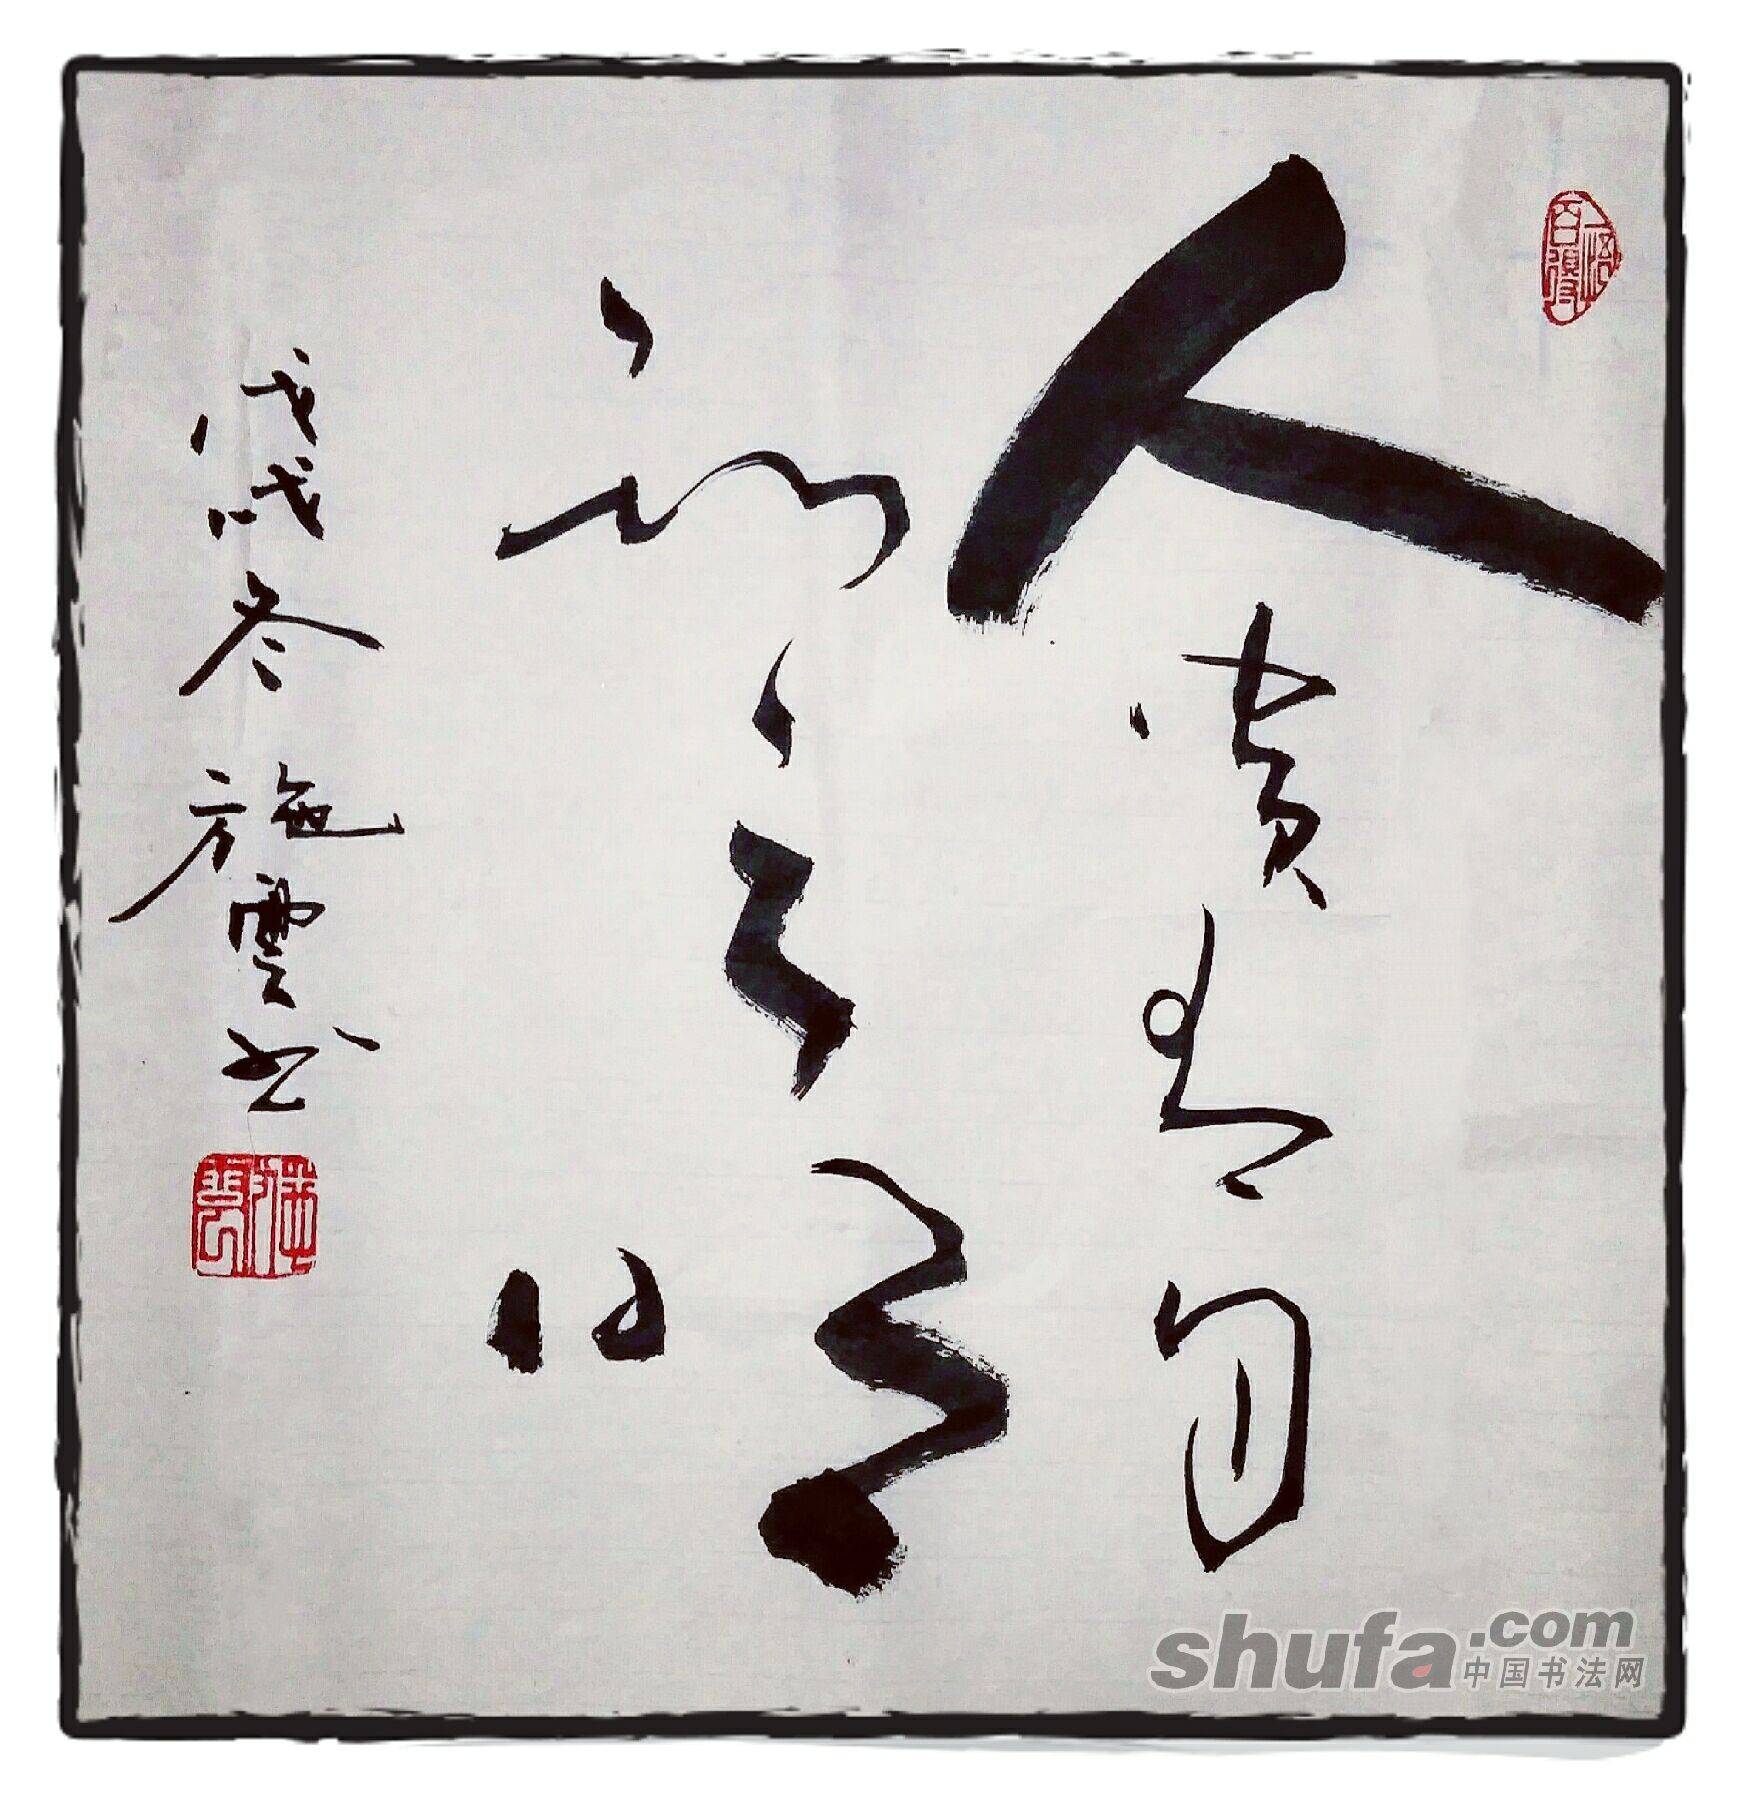 人貴有自
知之明
戊戌冬 施雲书
shufa.com
中国书法网